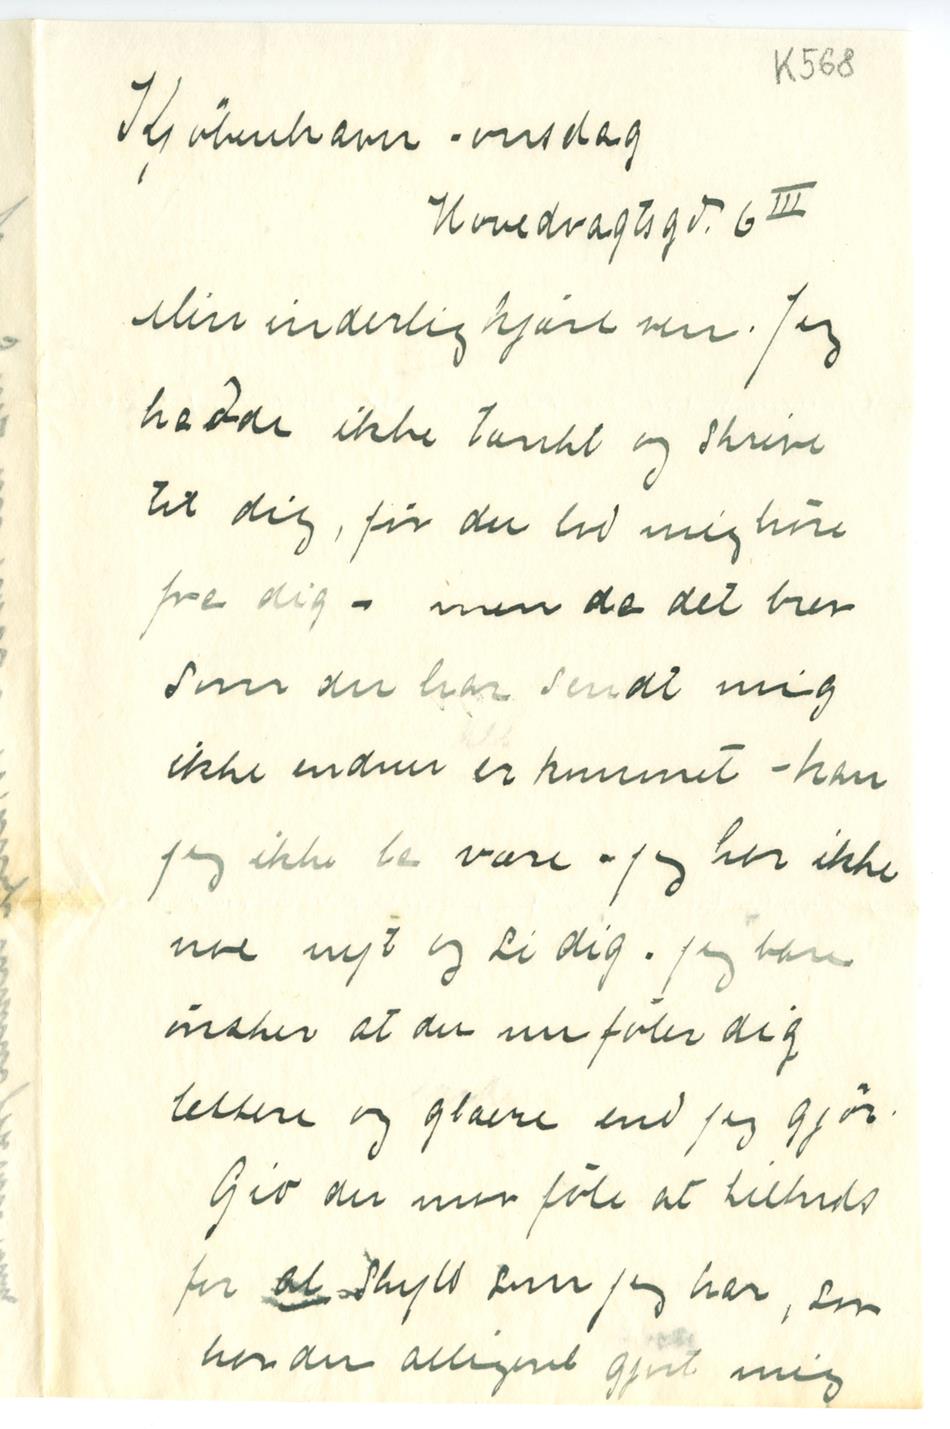 K568
Kjöbenhavn - onsdag
Hovedvagtsgd. 6 III
Min inderlig kjære ven. Jeg
hadde ikke tænkt og skrive
til dig, för du lod mig höre
fra dig - men da det brev
som du har sendt mig
ikke endnu er kommet - kan
jeg ikke la være - jeg har ikke
noe nyt og si dig. jeg bare
önsker at du nu föler dig
lettere og glaere end jeg gjör.
Gid du mor föle at tiltrods
for al skyld som jeg har, sor
har du alligevel gjort mig